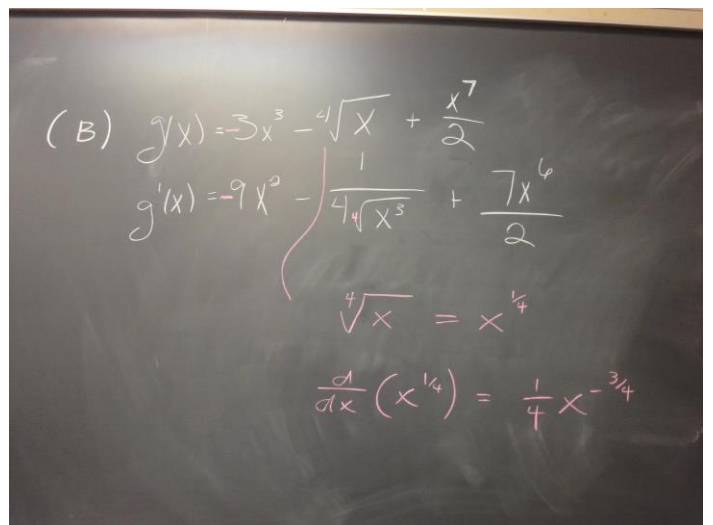 (B) g(x) = -3x³ - ∜x + x⁷/2
g'(x) = -9x² - 1/(4∜x³) + 7x⁶/2
∜x = x^(1/4)
d/dx (x^(1/4)) = 1/4 x^(-3/4)